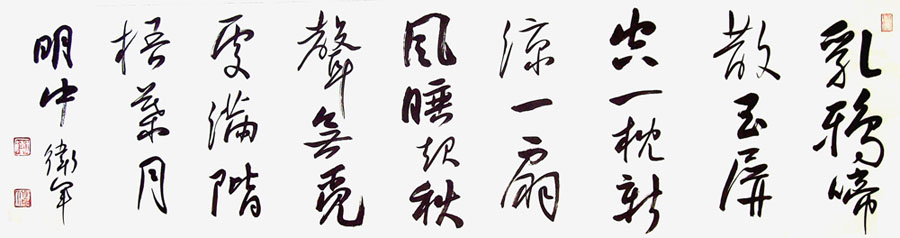 乳鴉啼
散玉屏
空一枕新
涼一扇
風睡起秋
聲無覓
處滿階
梧葉月
明中 衛軍